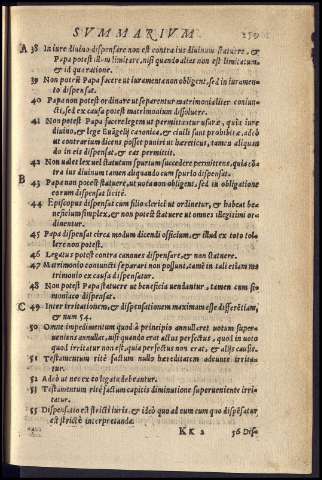 SVMMARIVM.
A 38 In iure diuino dispensare non est contra ius diuinum statuere, &
Papa potest illum limitare, nisi quando alias non est limitatum,
& id qua ratione.
39 Non potest Papa facere ut iuramenta non obligent, sed in iuramen-
to dispensat.
40 Papa non potest ordinare ut separentur matrimonia liter coniun-
cti, sed ex causa potest matrimonium dissoluere.
41 Non potest Papa facere legem ut permittantur usuræ, quia iure
diuino, & lege Euãgelij canonica, & ciuili sunt prohibitæ, adeò
ut contrarium dicens posset puniri ut hæreticus, tamen aliqua
do in eis dispensat, & eas permittit.
42 Non ualet lex uel statutum spurium succedere permittens, quia cõ-
tra ius diuinum tamen aliquando cum spurio dispensat.
B
43 Papa non potest statuere, ut uota non obligent, sed in obligatione
eorum dispensat licitè.
44 Episcopus dispensat cum filio clerici ut ordinetur, & habeat be-
neficium simplex, & non potest statuere ut omnes illegitimi or-
dinentur.
45 Papa dispensat circa modum dicendi officium, & illud ex toto tol-
lere non potest.
46 Legatus potest contra canones dispensare, & non statuere.
47 Matrimonio coniuncti separari non possunt, tamẽ in tali etiam ma
trimonio ex causa dispensatur.
48 Non potest Papa statuere ut beneficia uendantur, tamen cum si-
moniaco dispensat.
C 49 Inter irritationem, & dispensationem maximam esse differẽtiam,
& num 54.
50 Omne impedimentum quod à principio annullaret uotum super-
ueniens annullat, nisi quando erat actus perfectus, quod in uoto
quod irritatur non est, quia perfectus non erat, & alijs causis.
51 Testamentum ritè factum nullo hæreditatem adeunte irritu-
tur.
52 Adeò ut nec ex eo legata debeantur.
53 Testamentum ritè factum capitis diminutione superueniente irri-
tatur.
55 Dispensatio est stricti iuris, & ideò quo ad eum cum quo dispẽsatur
est strictè interpretanda.
KK 2
56 Dise